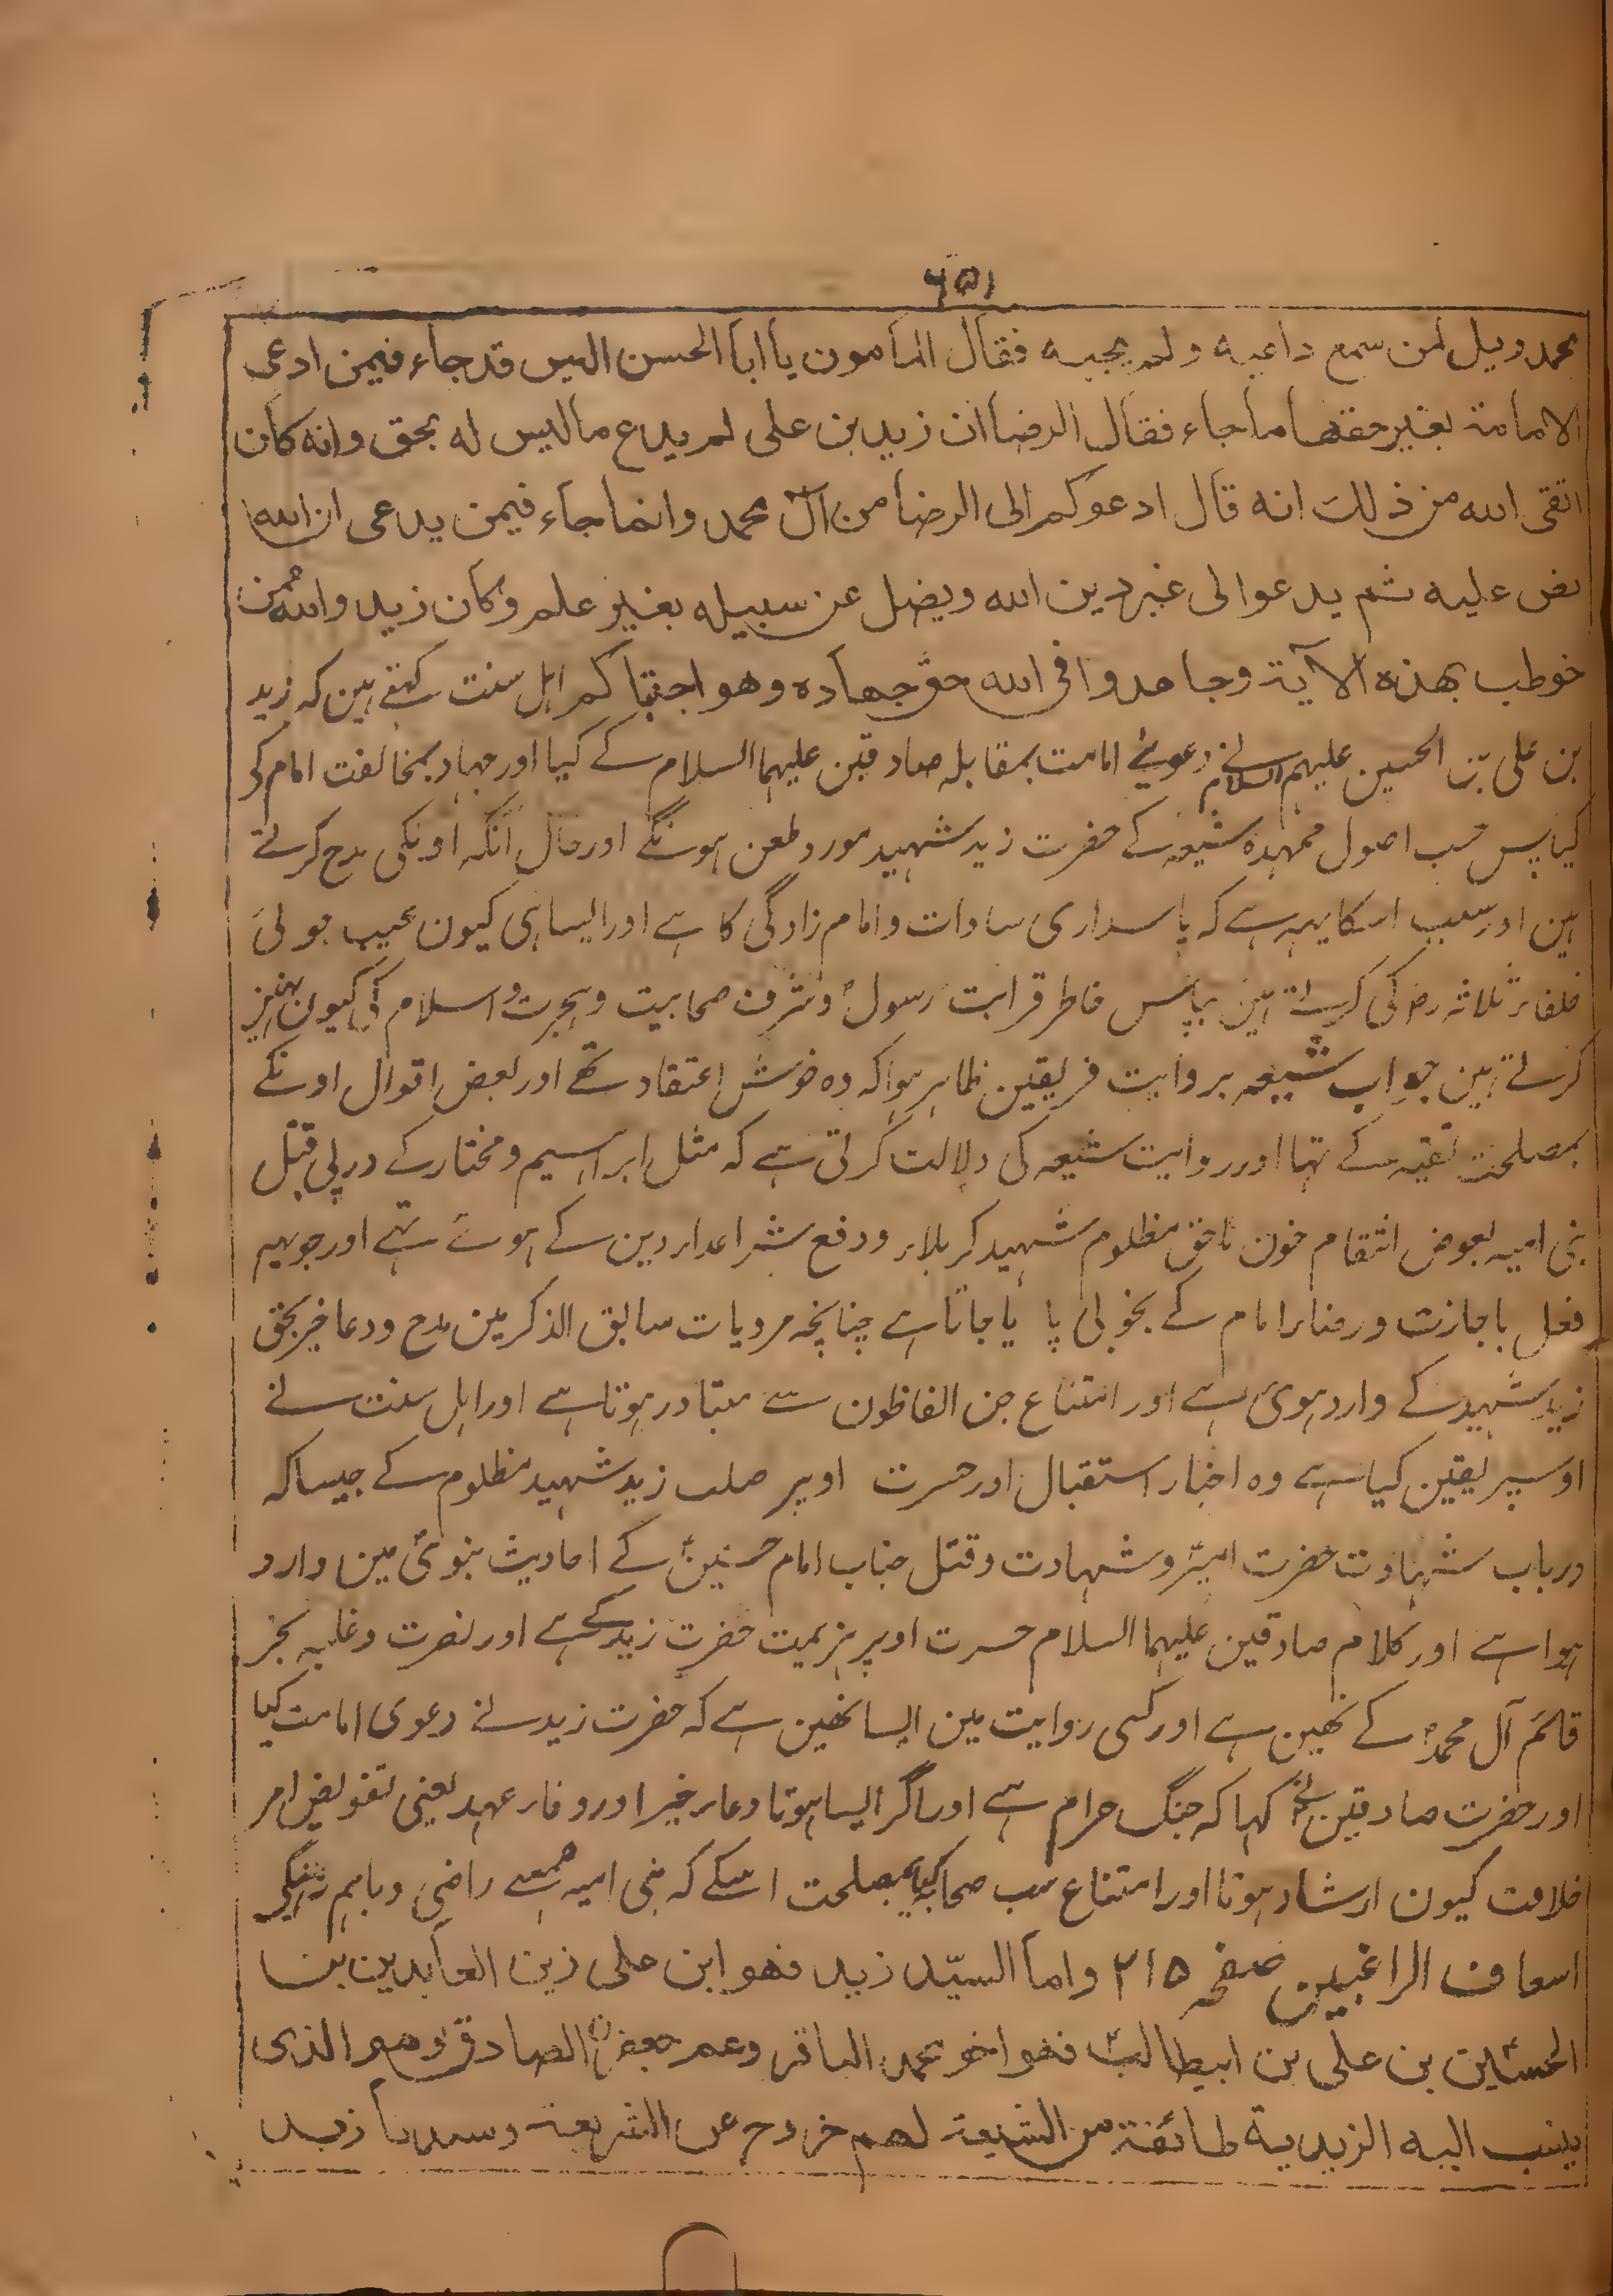 ۶۵۱
محمد ویل لمن سمع داعیه ولم یجبه فقال المأمون یا ابا الحسن الیس قد جاء فیمن ادعی
الامامة بغیر حقها ما جاء فقال الرضا ان زید بن علی لم یدع ما لیس له بحق وانه کان
اتقی الله من ذلک انه قال ادعوکم الی الرضا من آل محمد وانما جاء فیمن یدعی ان الله
نص علیه ثم یدعوا لی غیر دین الله ویضل عن سبیله بغیر علم وکان زید والله ممن
خوطب بهذه الآیة وجاهدوا فی الله حق جهاده وهو اجتباکم اہل سنت کہتے ہین کہ زید
بن علی بن الحسین علیہم السلام نے دعویٰ امامت بمقابلہ صادقین علیہما السلام کے کیا اور جہاد بمخالفت امام کے
کیا پس حسب اصول ممہدہ شیعہ کے حضرت زید شہید مورد طعن ہونگے اور حال آنکہ اونکی مدح کرتے
ہین اور سبب اسکا یہہ ہے کہ پاسداری سادات و امام زادگی کا ہے اور ایسا ہی کیون عیب جوئی
خلفاء ثلاثہ رض کی کرتے ہین بپاس خاطر قرابت رسول و شرف صحابیت و ہجرت و اسلام کی کیون نہیز
کرتے ہین جواب شیعہ بروایت فریقین ظاہر ہوا کہ وہ خوش اعتقاد تھے اور بعض اقوال اونکے
بمصلحت تقیہ کے تہا اور روایت شیعہ کی دلالت کرتی ہے کہ مثل ابراہیم و مختار کے درپی قتل
بنی امیہ بعوض انتقام خون ناحق مظلوم شہید کربلاء و دفع شر اعداء دین کے ہوئے تہے اور جو یہہ
فعل باجازت و رضاء امام کے بخوبی پا یا جاتا ہے چنانچہ مرویات سابق الذکر مین مدح و دعا خیر بحق
زید شہید کے وارد ہوئی ہے اور امتناع جن الفاظون سے متبادر ہوتا ہے اور اہل سنت نے
اوسپر یقین کیا ہے وہ اخبار استقبال اور حسرت اوپر صلب زید شہید مظلوم کے جیسا کہ
درباب شہادت حضرت امیر و شہادت و قتل جناب امام حسنین کے احادیث نبوی مین وارد
ہوا ہے اور کلام صادقین علیہما السلام حسرت اوپر ہزیمت حضرت زید کے ہے اور نصرت و غلبہ بجز
قائم آل محمد کے نہین ہے اور کسی روایت مین ایسا نہین ہے کہ حضرت زید نے دعوی امامت کیا
اور حضرت صادقین نے کہا کہ جنگ حرام ہے اور اگر ایسا ہوتا دعاء خیر اور وفاء عہد یعنی تفویض امر
خلافت کیون ارشاد ہوتا اور امتناع سب صحابہ بمصلحت اسکے کہ بنی امیہ ہمسے راضی و باہم
اسعاف الراغبین صفحہ ۲۱۵ واما السیّد زید فهو ابن علی زین العابدین بن
الحسین بن علی بن ابیطالب فهو اخو محمد الباقر وعم جعفر الصادق وهو الذی
ینسب الیه الزیدیة طائفة من الشیعة لهم خروج عن الشریعة وسیدنا زید